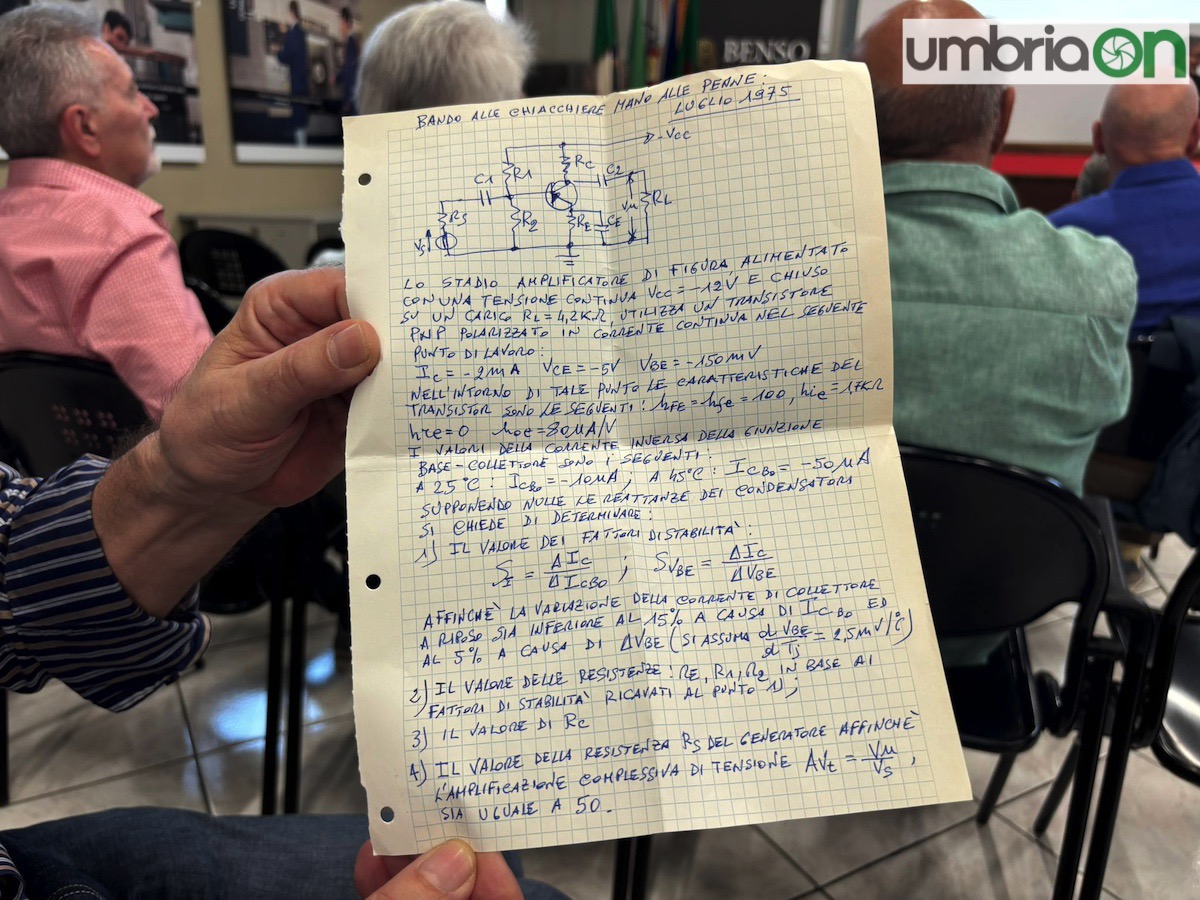 umbriaON
BENSO
BANDO ALLE CHIACCHIERE MANO ALLE PENNE:
LUGLIO 1975
-VCC
RC
C2
C1
R1
RL
RS
R2
RE
CE
Vu
VS
LO STADIO AMPLIFICATORE DI FIGURA, ALIMENTATO
CON UNA TENSIONE CONTINUA VCC=-12V E CHIUSO
SU UN CARICO RL=4,2KΩ, UTILIZZA UN TRANSISTORE
PNP POLARIZZATO IN CORRENTE CONTINUA NEL SEGUENTE
PUNTO DI LAVORO:
IC=-2mA VCE=-5V VBE=-150mV
NELL'INTORNO DI TALE PUNTO LE CARATTERISTICHE DEL
TRANSISTOR SONO LE SEGUENTI: hFE=hfe=100, hie=1,7KΩ
hre=0 hoe=80μA/V
I VALORI DELLA CORRENTE INVERSA DELLA GIUNZIONE
BASE-COLLETTORE SONO I SEGUENTI:
A 25°C: ICBo=-10μA; A 45°C: ICBo=-50μA
SUPPONENDO NULLE LE REATTANZE DEI CONDENSATORI
SI CHIEDE DI DETERMINARE:
1) IL VALORE DEI FATTORI DI STABILITA':
SI = ΔIC/ΔICBO ; SVBE = ΔIC/ΔVBE
AFFINCHÈ LA VARIAZIONE DELLA CORRENTE DI COLLETTORE
A RIPOSO SIA INFERIORE AL 15% A CAUSA DI ICBO ED
AL 5% A CAUSA DI ΔVBE (SI ASSUMA dVBE/dTj = 2,5mV/°C)
2) IL VALORE DELLE RESISTENZE: RE, R1, R2 IN BASE AI
FATTORI DI STABILITA' RICAVATI AL PUNTO 1);
3) IL VALORE DI RC
4) IL VALORE DELLA RESISTENZA RS DEL GENERATORE AFFINCHÈ
L'AMPLIFICAZIONE COMPLESSIVA DI TENSIONE AVt = Vu/VS,
SIA UGUALE A 50.